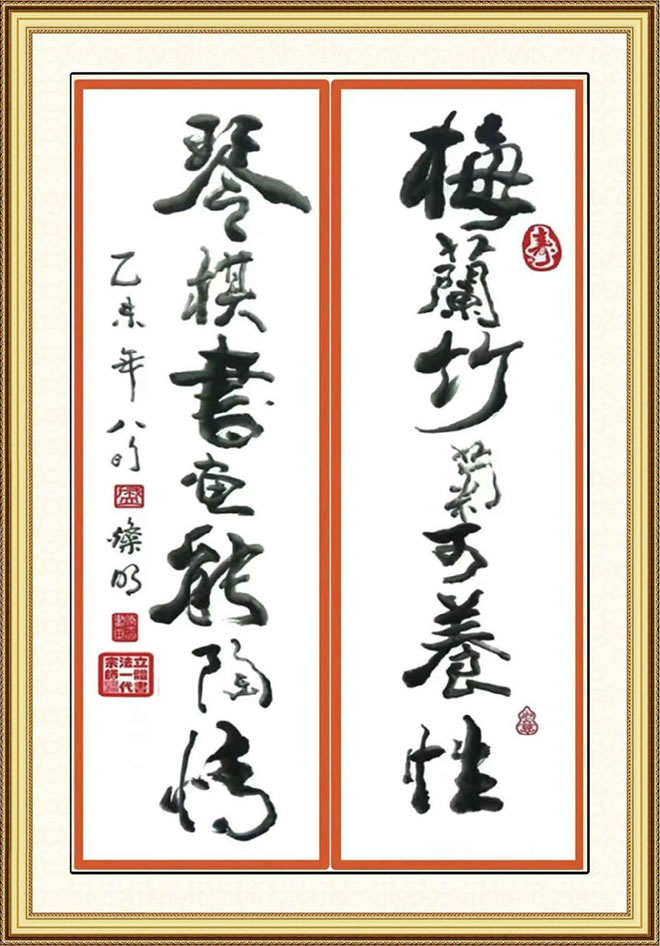 梅蘭竹菊可養性
琴棋書畫能陶情
乙未年八月
燦明
立體書
法一代
宗師